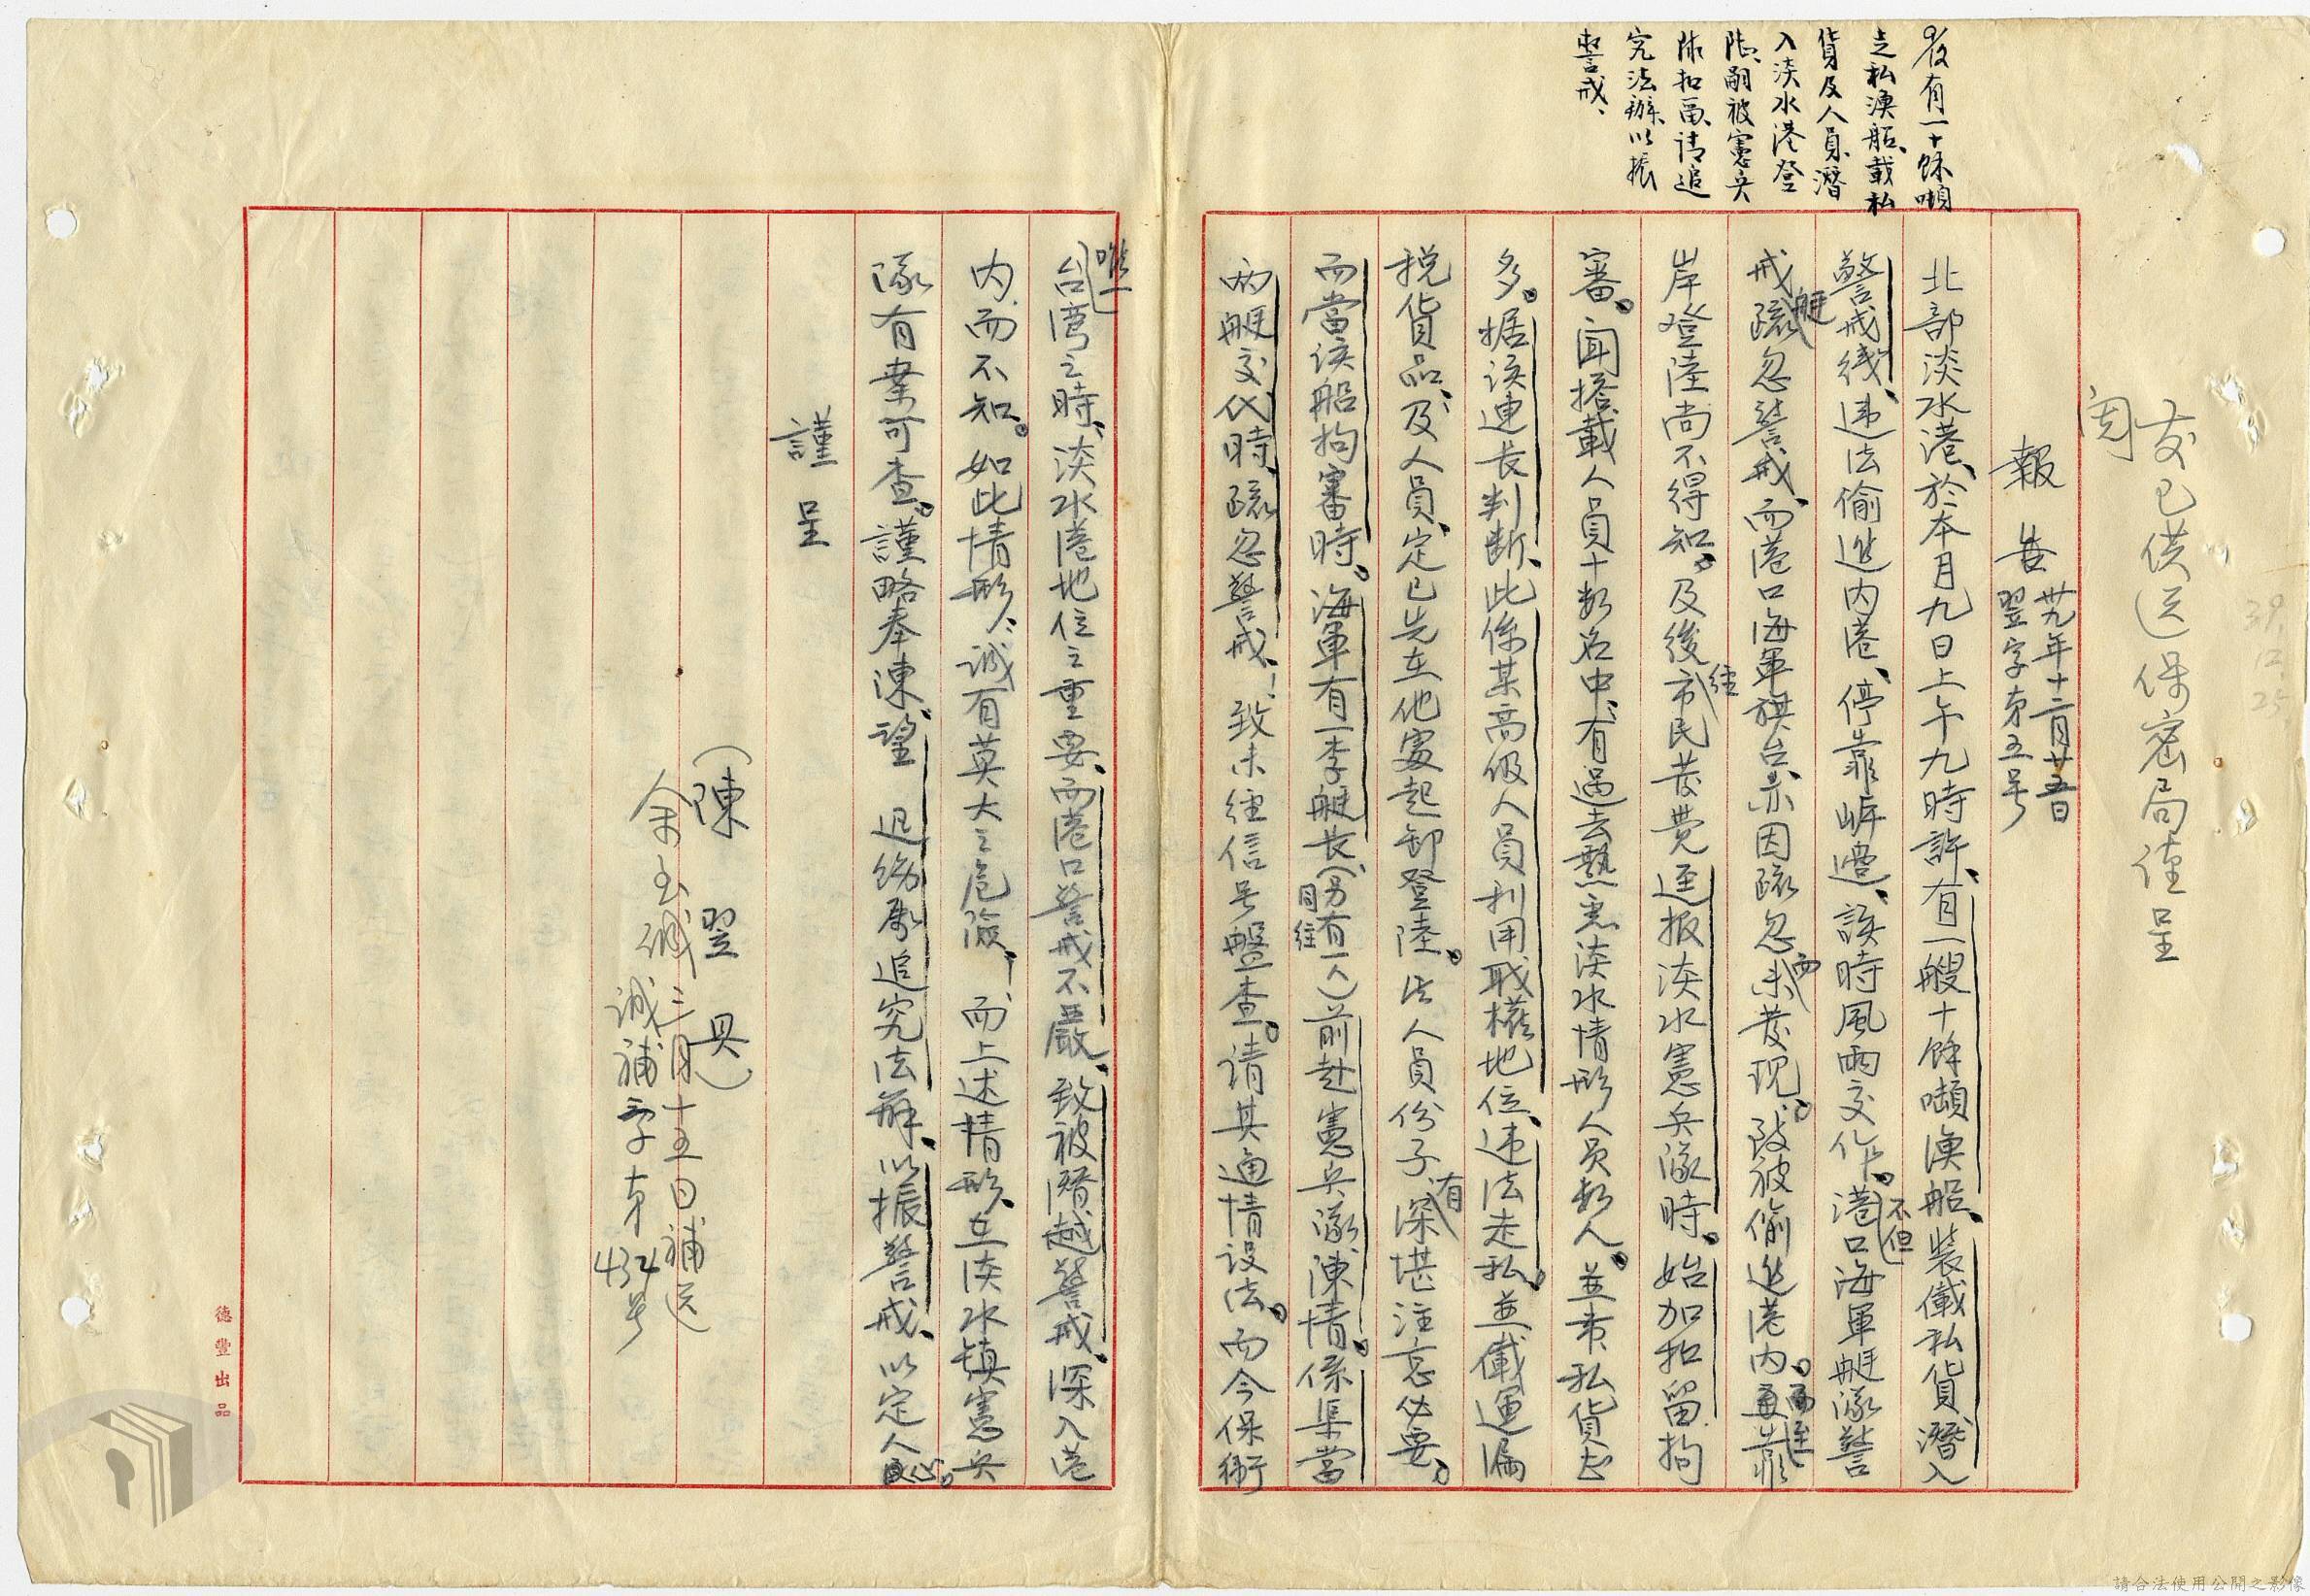 發已供送保密局謹呈
閱
39.12.25
報告
卅九年十二月廿五日
翌字第五号
玆有一十餘噸
走私漁船、載私
貨及人員、潛
入淡水港登
陸、嗣被憲兵
隊扣留、請追
究法辦、以振
警戒、
北部淡水港、於本月九日上午九時許、有一艘十餘噸漁船、裝儎私貨、潛入
警戒綫、违法偷進內港、停靠岸邊、該時風雨交作。不但港口海軍艇隊警
戒艇疏忽警戒、而港口海軍旗台、亦因疏忽而未發現。致被偷進港內。甚至靠
岸登陸尚不得知。及後經市民發覺逕报淡水憲兵隊時。始加扣留拘
審。聞搭載人員十数名中、有過去熟悉淡水情形人員数人。並帶私貨甚
多。据该連長判断、此係某高级人員利用職權地位、违法走私。並儎運漏
税貨品、及人員、定已先在他處起卸登陸。此人員份子、有深堪注意必要。
而當该船拘審時、海軍有一李艇長（另有一人同往）前赴憲兵隊陳情。係渠當
兩艇交代時、疏忽警戒！致未經信号盤查。请其通情设法。而今保衛
唯一台湾之時、淡水港地位之重要、而港口警戒不嚴、致被潛越警戒、深入港
內、而不知。如此情形、诚有莫大之危險、而上述情形、在淡水镇憲兵
隊有案可查。謹略奉陳、望 迅飭嚴追究法辦、以振警戒、以定人心。
謹呈
（陳翌具）
余玉诚三月十五日補送
诚補字第434号
德豐出品
請合法使用公開之影像